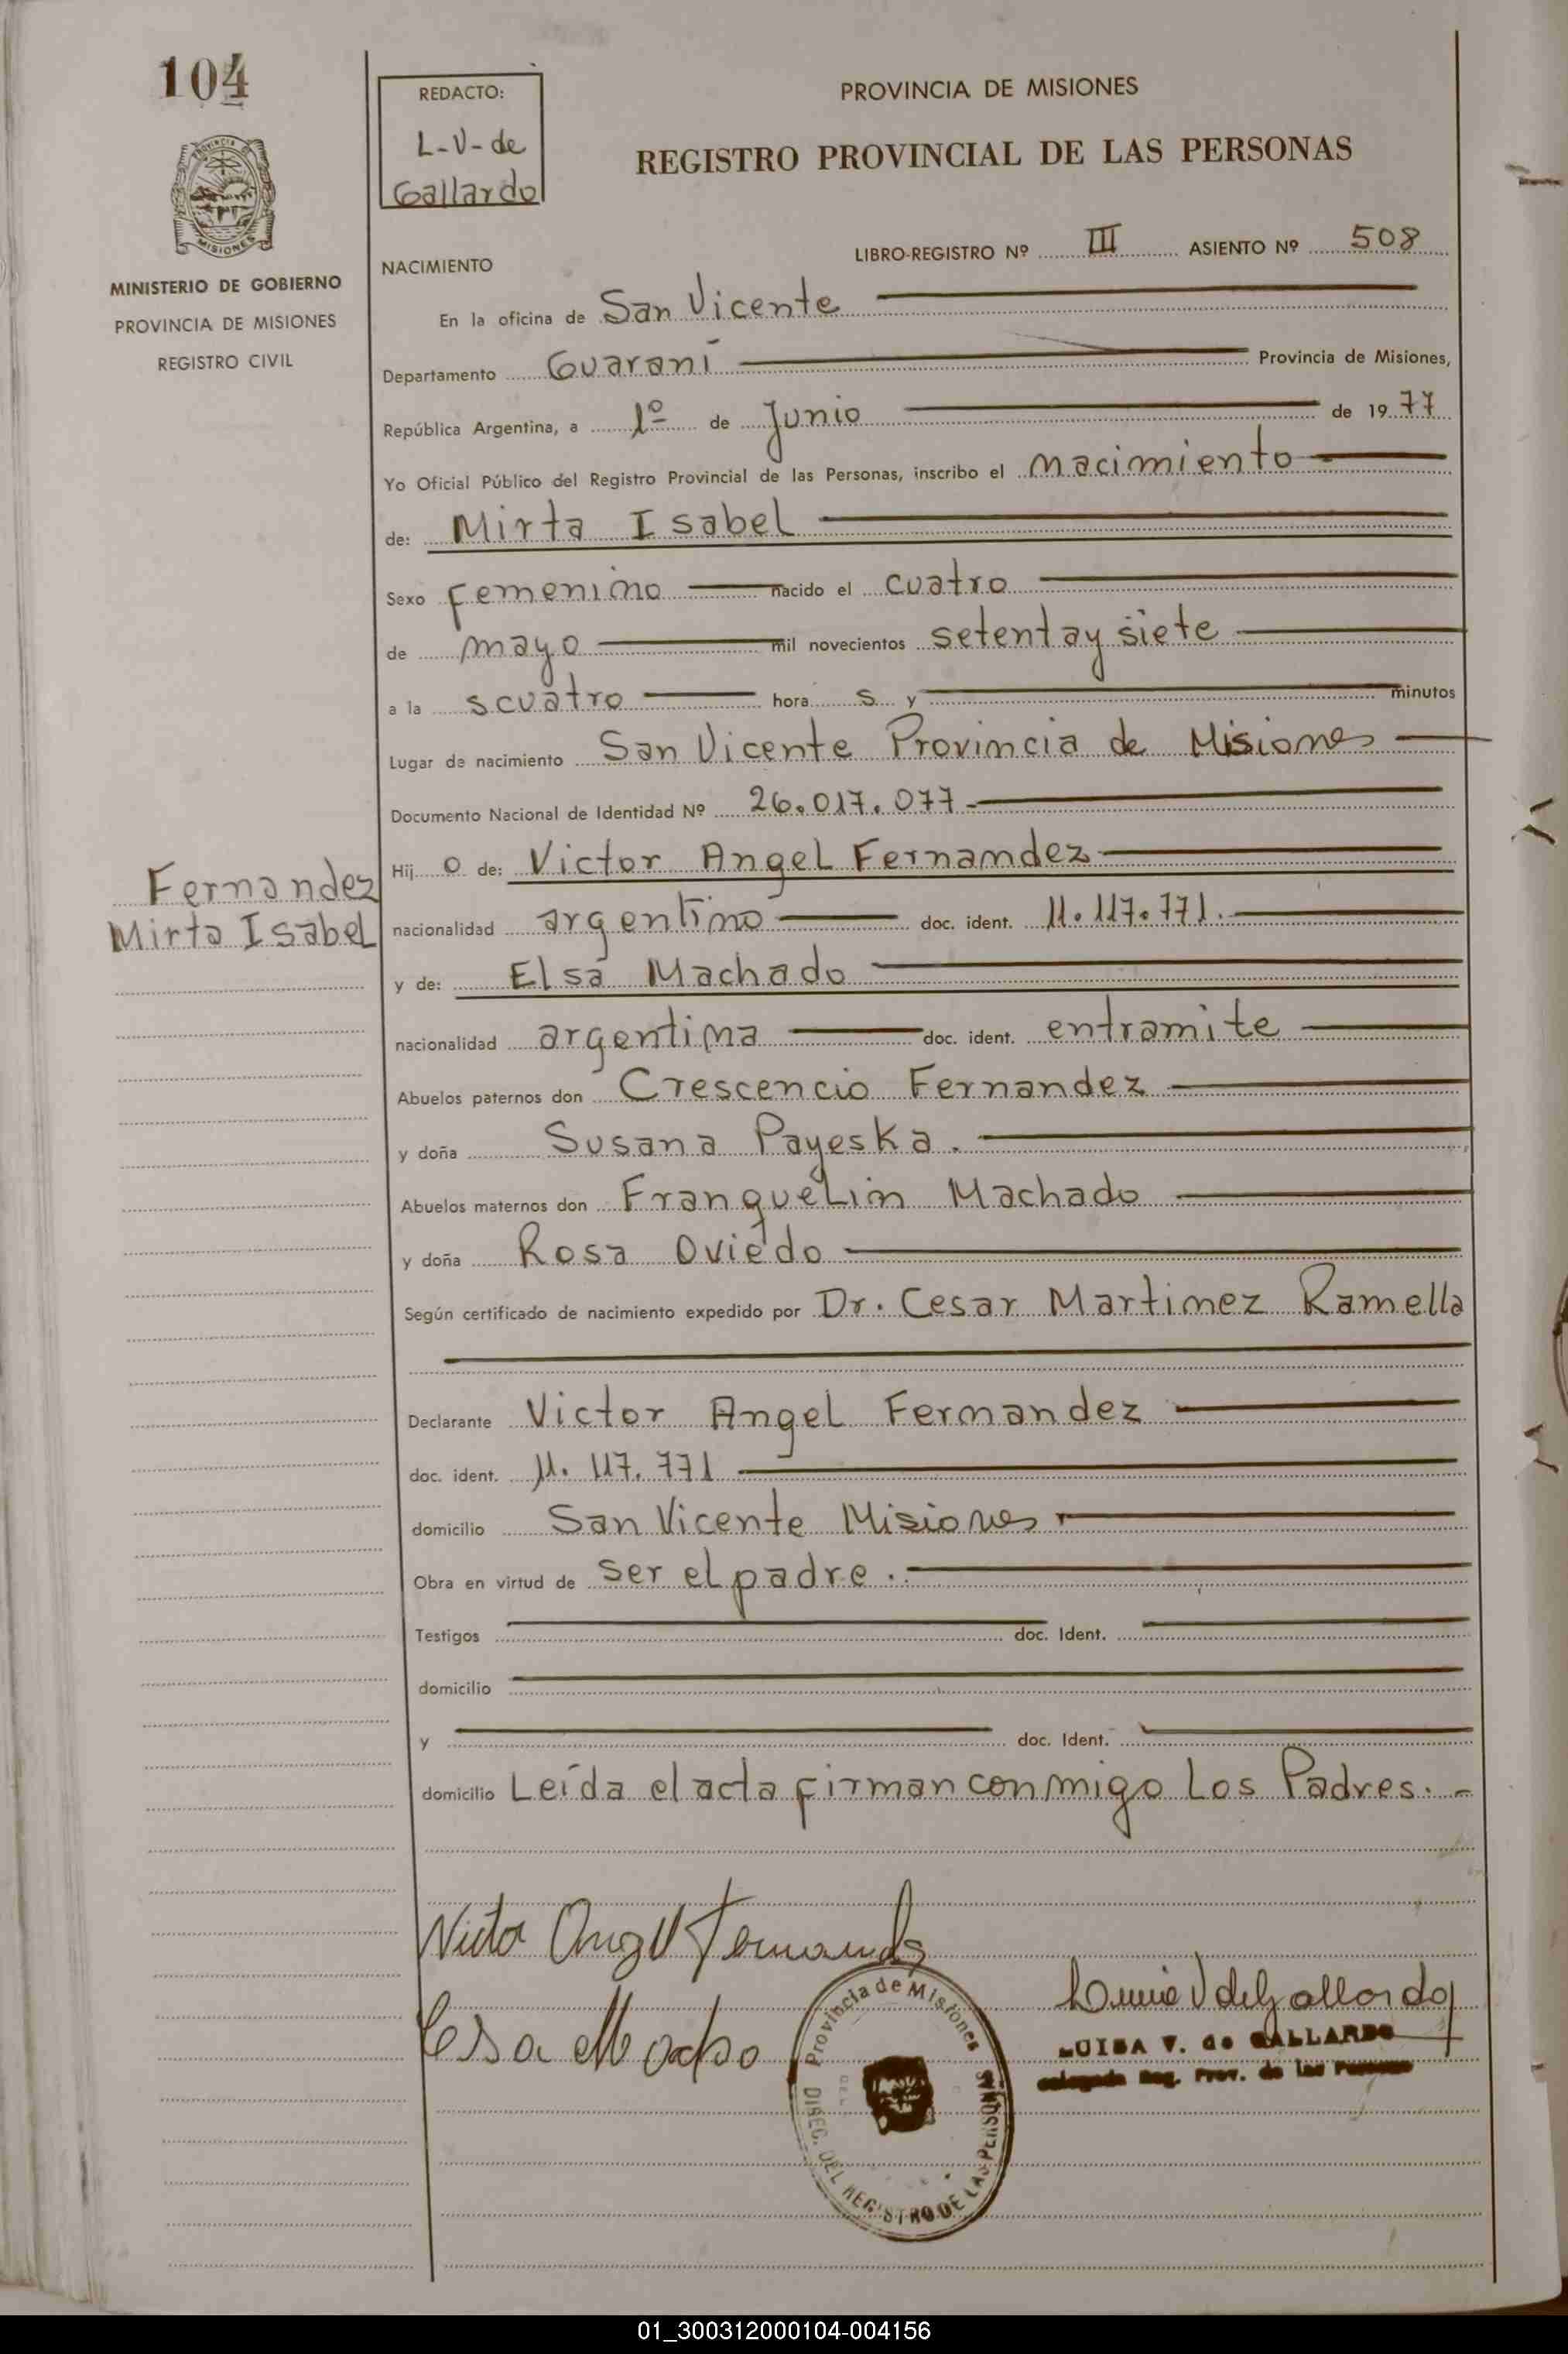 104
REDACTO:
L-V-de
Gallardo
PROVINCIA DE MISIONES
REGISTRO PROVINCIAL DE LAS PERSONAS
MISIONES
MINISTERIO DE GOBIERNO
PROVINCIA DE MISIONES
REGISTRO CIVIL
LIBRO-REGISTRO Nº III ASIENTO Nº 508
NACIMIENTO
En la oficina de San Vicente
Departamento Guaraní Provincia de Misiones,
República Argentina, a 1º de Junio de 1977
Yo Oficial Público del Registro Provincial de las Personas, inscribo el nacimiento
de: Mirta Isabel
Sexo femenino nacido el cuatro
de mayo mil novecientos setentay siete
a la s cuatro hora s y minutos
Lugar de nacimiento San Vicente Provincia de Misiones
Documento Nacional de Identidad Nº 26.017.077
Hij o de: Victor Angel Fernandez
Fernandez
Mirta Isabel
nacionalidad argentino doc. ident. 11.117.771.
y de: Elsa Machado
nacionalidad argentina doc. ident. entramite
Abuelos paternos don Crescencio Fernandez
y doña Susana Payeska.
Abuelos maternos don Franquelin Machado
y doña Rosa Oviedo
Según certificado de nacimiento expedido por Dr. Cesar Martinez Ramella
Declarante Victor Angel Fernandez
doc. ident. 11.117.771
domicilio San Vicente Misiones
Obra en virtud de ser el padre.
Testigos doc. Ident.
domicilio
y doc. Ident.
domicilio Leída el acta firman conmigo Los Padres.-
Victor Angel Fernandez
Elsa Machado
Luisa V de Gallardo
LUISA V. de GALLARDO
Delegada Reg. Prov. de las Personas
Provincia de Misiones
DIREC. DEL REGISTRO DE LAS PERSONAS
01_300312000104-004156